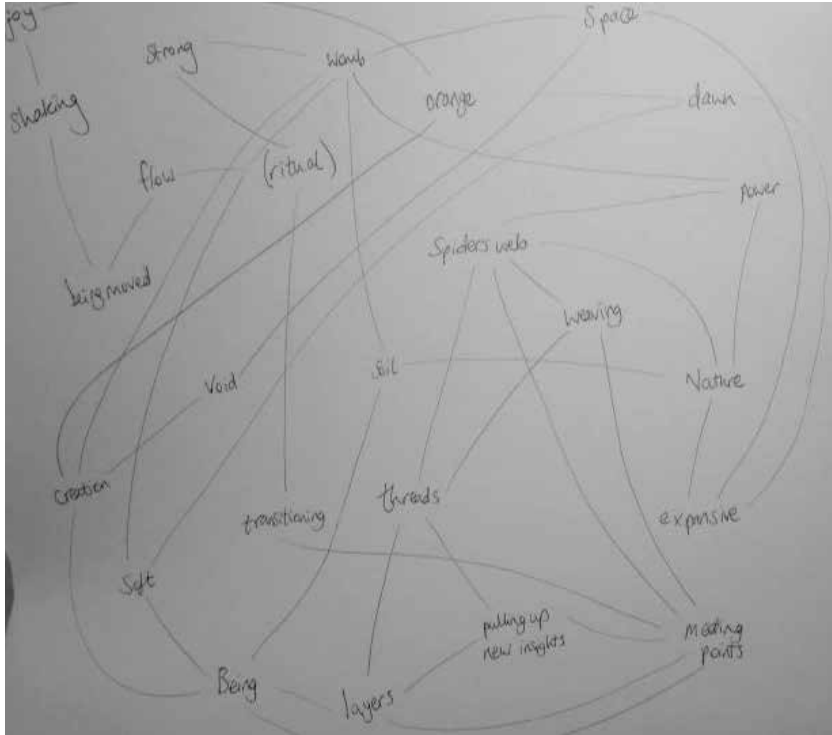 joy
Space
Strong
Womb
orange
dawn
Shaking
flow
(ritual)
power
Spiders web
being moved
Weaving
Void
Soil
Nature
Creation
threads
transitioning
expansive
Soft
pulling up
new insights
Meeting
points
Being
layers